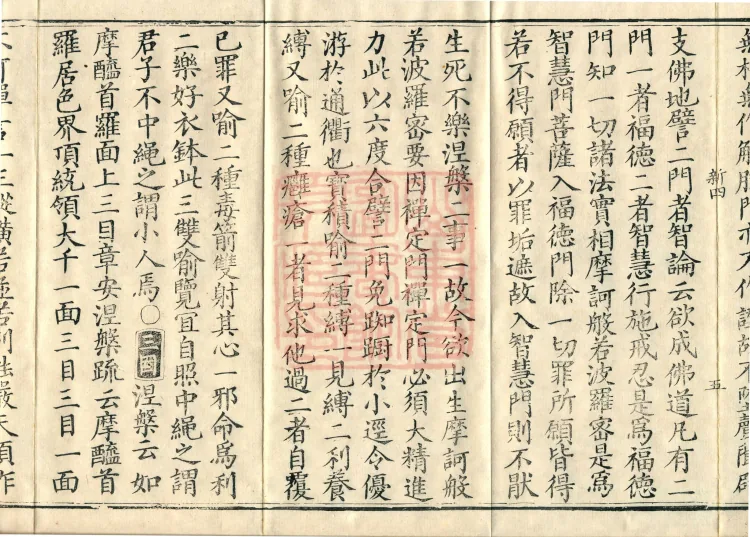 無相無作解脫門亦不作證故不墮聲聞辟
新四
五
支佛地譬二門者智論云欲成佛道凡有二
門一者福德二者智慧行施戒忍是爲福德
門知一切諸法實相摩訶般若波羅密是爲
智慧門菩薩入福德門除一切罪所願皆得
若不得願者以罪垢遮故入智慧門則不猒
生死不樂涅槃二事一故今欲出生摩訶般
若波羅密要因禪定門禪定門必須大精進
力此以六度合譬二門免踟蹰於小逕令優
游於通衢也寶積喻二種縛一見縛二利養
縛又喻二種癰瘡一者見求他過二者自覆
已罪又喻二種毒箭雙射其心一邪命爲利
二樂好衣鉢此三雙喻覽宜自照中繩之謂
君子不中繩之謂小人焉○三目涅槃云如
摩醯首羅面上三目章安涅槃疏云摩醯首
羅居色界頂統領大千一面三目三目一面